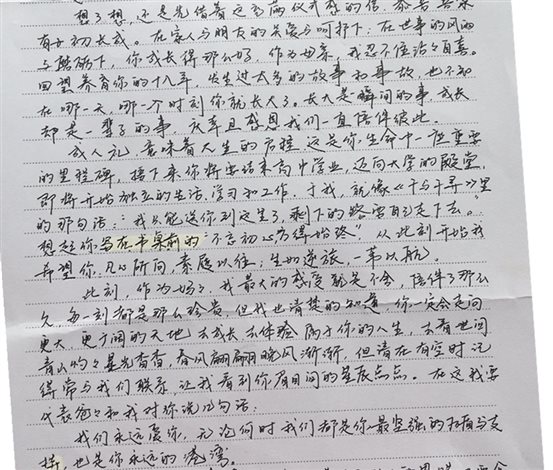 想了想,还是先借着这
有女初长成。在家人与朋友的关爱与呵护下;在世事的风雨
与磨砺下,你成长得那么好,作为母亲,我忍不住沾沾自喜。
回望养育你的十八年,发生过太多的故事和事故,也不知
在哪一天,哪一个时刻你就长大了。长大是瞬间的事,成长
却是一辈子的事,庆幸且感恩我们一直陪伴彼此。
成人礼,意味着人生的启程,这是你生命中一段重要
的里程碑,接下来你将要结束高中学业,迈向大学的殿堂,
即将开始独立的生活、学习和工作。于我,就像《千与千寻》里
的那句话:“我只能送你到这里了,剩下的路要自己走下去。”
想起你写在书桌前的“不忘初心,方得始终”,从此刻开始我
希望你,凡心所向,素履以往;生如逆旅,一苇以航。
此刻,作为妈妈,我最大的感受就是不舍,陪伴了那么
久,每一刻都是那么珍贵,但我也清楚的知道,你一定会走向
更大、更广阔的天地,去成长,去体验属于你的人生,去看世间
青山灼灼星光杳杳,春风翩翩晚风渐渐,但请在有空时记
得常与我们联系,让我看到你眉目间的星辰点点。在这我要
代表爸爸和我对你说几句话:
我们永远爱你,无论何时我们都是你最坚强的后盾与支
撑,也是你永远的港湾。